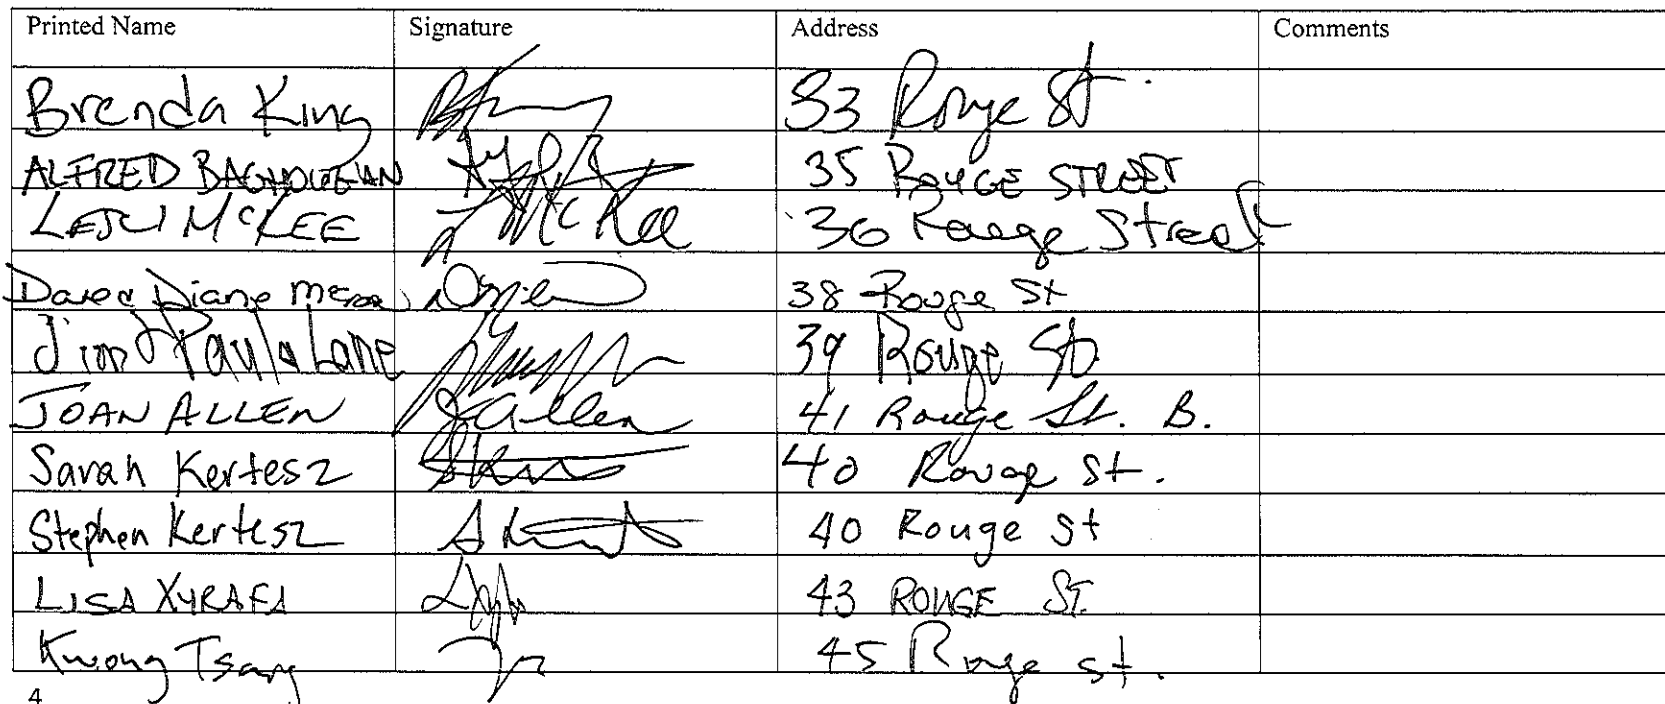 Printed Name Signature Address Comments
Brenda King 33 Rouge St
ALFRED 35 ROUGE STREET
McKEE McKee 36 Rouge Street
Diane 38 Rouge St
Jim & Paula Lane 39 Rouge St.
JOAN ALLEN J Allen 41 Rouge St. B.
Sarah Kertesz 40 Rouge St.
Stephen Kertesz 40 Rouge St
LISA XYRAFA 43 ROUGE ST.
Kwong Tsang 45 Rouge St.
4